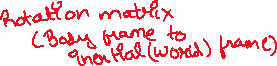 Rotation matrix
(Body frame to
inertial (World) frame)